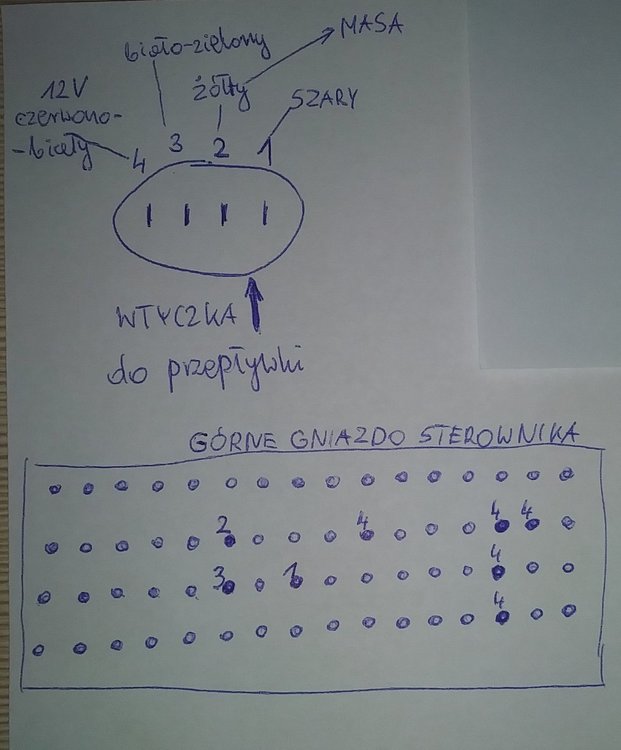 MASA
biało-zielony
żółty
12V
SZARY
czerwono-
-biały
4 3 2 1
WTYCZKA
do przepływki
GÓRNE GNIAZDO STEROWNIKA
2 4 4 4
3 1 4
4